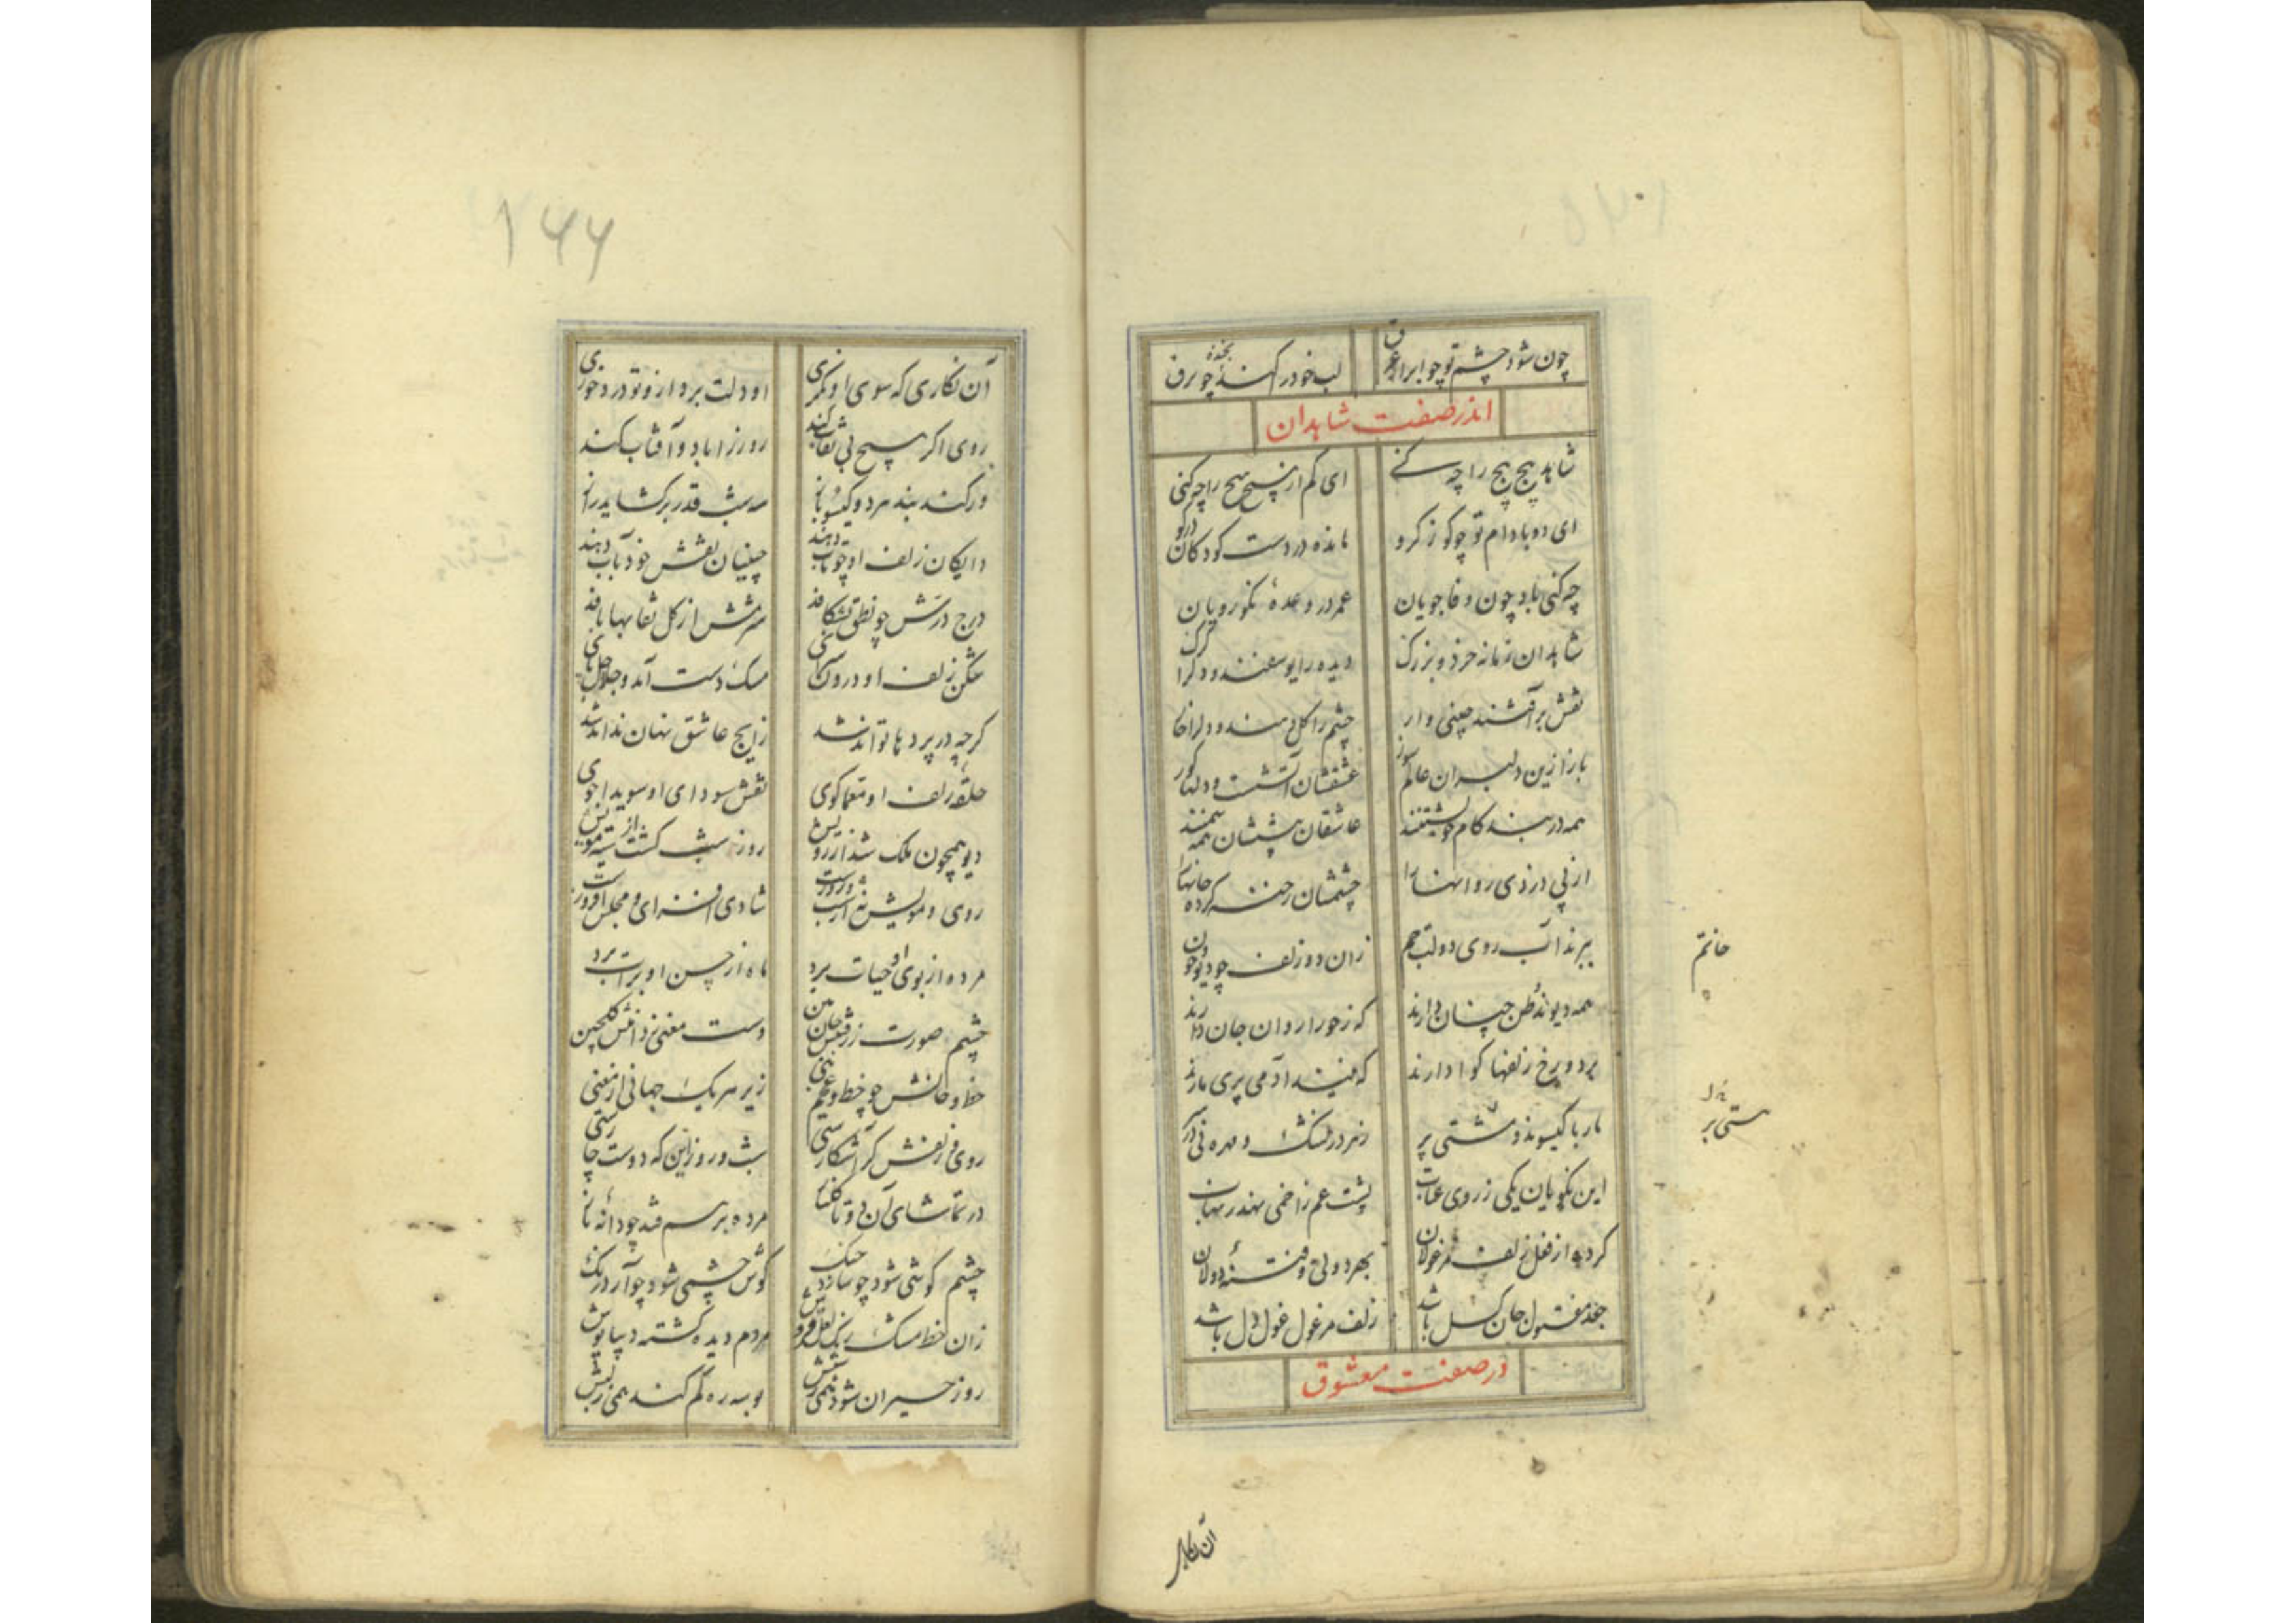 چون شود چشم تو چو ابر از عرق
لب خود در کند بخنده چو برق
اندر صفت شاهدان
شاهد پیچ پیچ را چه کنے
ای کم از هیچ هیچ را چه کنی
ای دو بادام تو چو کوز کرو
مانده در دست کودکان درکو
چه کنی باد چون وفا جویان
عمر در وعدهٔ نکورویان
شاهدان زمانه خرد و بزرک
دیده را یوسفند و دل را کرک
نقش بر آتشند چینی وار
چشم را کل دهند و دل را خار
باز ازین دلبران عالم سوز
عشقشان آتشست و دلها کوز
همه در بند کام خویشتنند
عاشقان پیششان همه
از پی دزدی روانها را
چشمشان رخنه کرده جانها را
ببرند آب روی دولت جم
زان دو زلف چو دیو
همه دیوند ظن چنان دارند
که ز حورا روان جان دارند
بر دو رخ زلفها کوا دارند
که فتد آدمی پری مارند
مار با کیسوند و مشتی پر
زهر در لشک و مهره نی در
این نکویان یکی ز روی عتاب
پشت غم زاخمی نهند
کرده از فعل زلف مرغولان
بهر دولی و فتنهٔ دولان
جعد مفتول جان کسل باشد
زلف مرغول غول دل باشد
در صفت معشوق
خاتم
مشتی پر
آن نکار
۱۶۶
آن نکاری که سوی او نکری
او دلت برد ازو تو درد خوری
روی اکر هیچ بی نقاب کند
روز را باد و آفتاب کند
ور کند بند هر دو کیسو باز
سه شب قدر برکشاید راز
دایکان زلف او چو تاب دهند
چینیان نقش خود بآب دهند
درج درش چو نطق بشکافد
سرمش از کل نقابها بافد
شکن زلف او درون سرای
مشک دست آمد و جلال پای
کرچه در پردها تواند شد
زان هیچ عاشق نهان نداند شد
حلقه زلف او معما کوی
نقش سودای او سویدا جوی
دیو همچون ملک شد از رویش
روز شب کشت از سیه مویش
روی و مویش نه از شب و روزست
شادی افزای و مجلس افروزست
مرده از بوی او حیات برد
ماه از حسن او برات برد
چشم صورت ز رقیش جان بین
دست معنی ز دانش کلچین
خط و خالش چو خط و عجم نبی
زیر هر یک جهانی از معنی
روی و زلفش کر آشکارستی
شب و روز این که دوست چارستی
در تماشای آن دو تا کلنار
مرده برهم فتد چو دانه نار
چشم کوشی شود چو سازد چنک
کوش چشمی شود چو آرد رنک
زان خط مشک رنک لعل فروش
مردم دیده کشته دیبا پوش
روز حیران شود
بوسه ره کم کند همی ز لبش